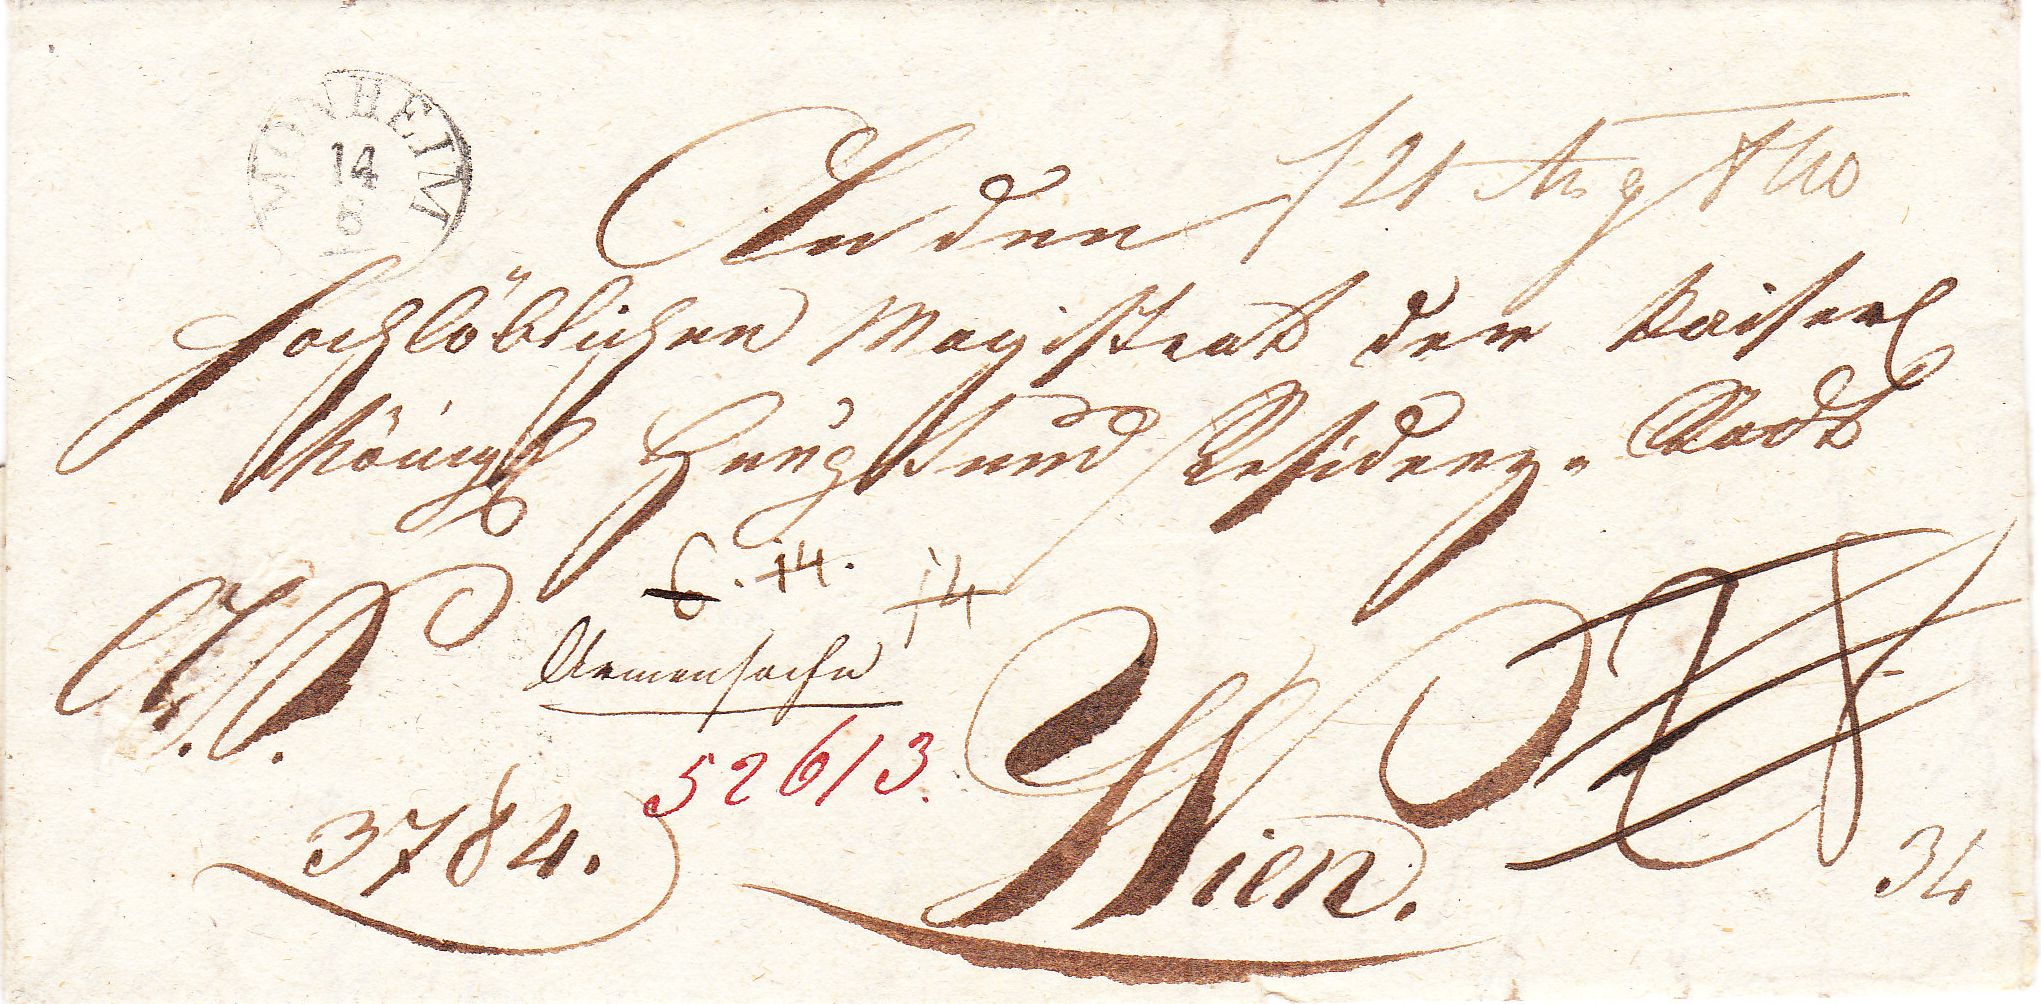 MONHEIM
14
8
An den
21 Aug 840
hochlöblichen Magistrat der Kaiserl
Königl Haupt und Residenz-Stadt
6. 14. 14
Armensache
52613.
3784.
Wien.
34